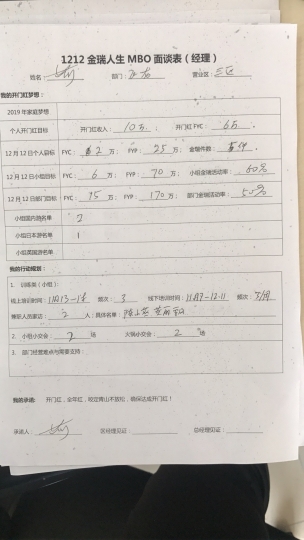 1212 金瑞人生 MBO 面谈表（经理）
姓名： 部门： 营业区：三区
我的开门红梦想：
2019 年家庭梦想
个人开门红目标 开门红收入： 10万 ； 开门红 FYC： 6万 。
12 月 12 日个人目标 FYC： 2 万； FYP： 25 万； 金瑞件数： 件
12 月 12 日小组目标 FYC： 6 万； FYP： 70 万； 小组金瑞活动率： 60%
12 月 12 日部门目标 FYC： 15 万； FYP： 170 万； 部门金瑞活动率： 50%
小组国内游名单
小组日本游名单 1
小组英国游名单
我的行动规划：
1. 训练类（小组）
线上培训时间： 频次： 3 线下培训时间： 频次：
兼职人员家访： 2 人；具体名单：
2. 小组小交会： 2 场 火锅小交会： 2 场
3. 部门经营难点与需要支持：
我的承诺： 开门红，全年红，咬定青山不放松，确保达成开门红！
承诺人： 区经理见证： 总经理见证：